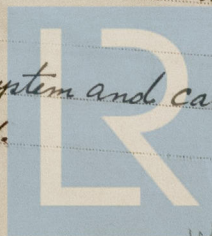 LR
ystem and ca